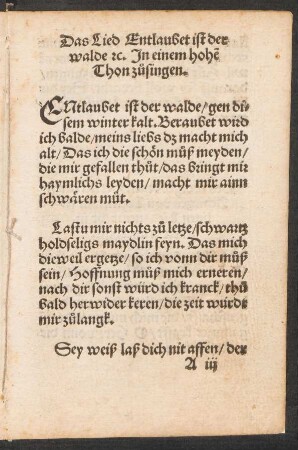 Das Lied Entlaubet ist der
walde ꝛc. In einem hohẽ
Thon zůsingen.
ENtlaubet ist der walde/gen di-
sem winter kalt. Beraubet wird
ich balde/meins liebs dz macht mich
alt/Das ich die schön můß meyden/
die mir gefallen thůt/das bringt mir
haymlichs leyden/macht mir ainn
schwären můt.
Lastu mir nichts zů letze/schwartz
holdseligs maydlin feyn. Das mich
dieweil ergetze/so ich vonn dir můß
sein/Hoffnung můß mich erneren/
nach dir sonst würd ich kranck/thů
bald herwider keren/die zeit würdt
mir zůlangk.
Sey weiß laß dich nit affen/der
A iij